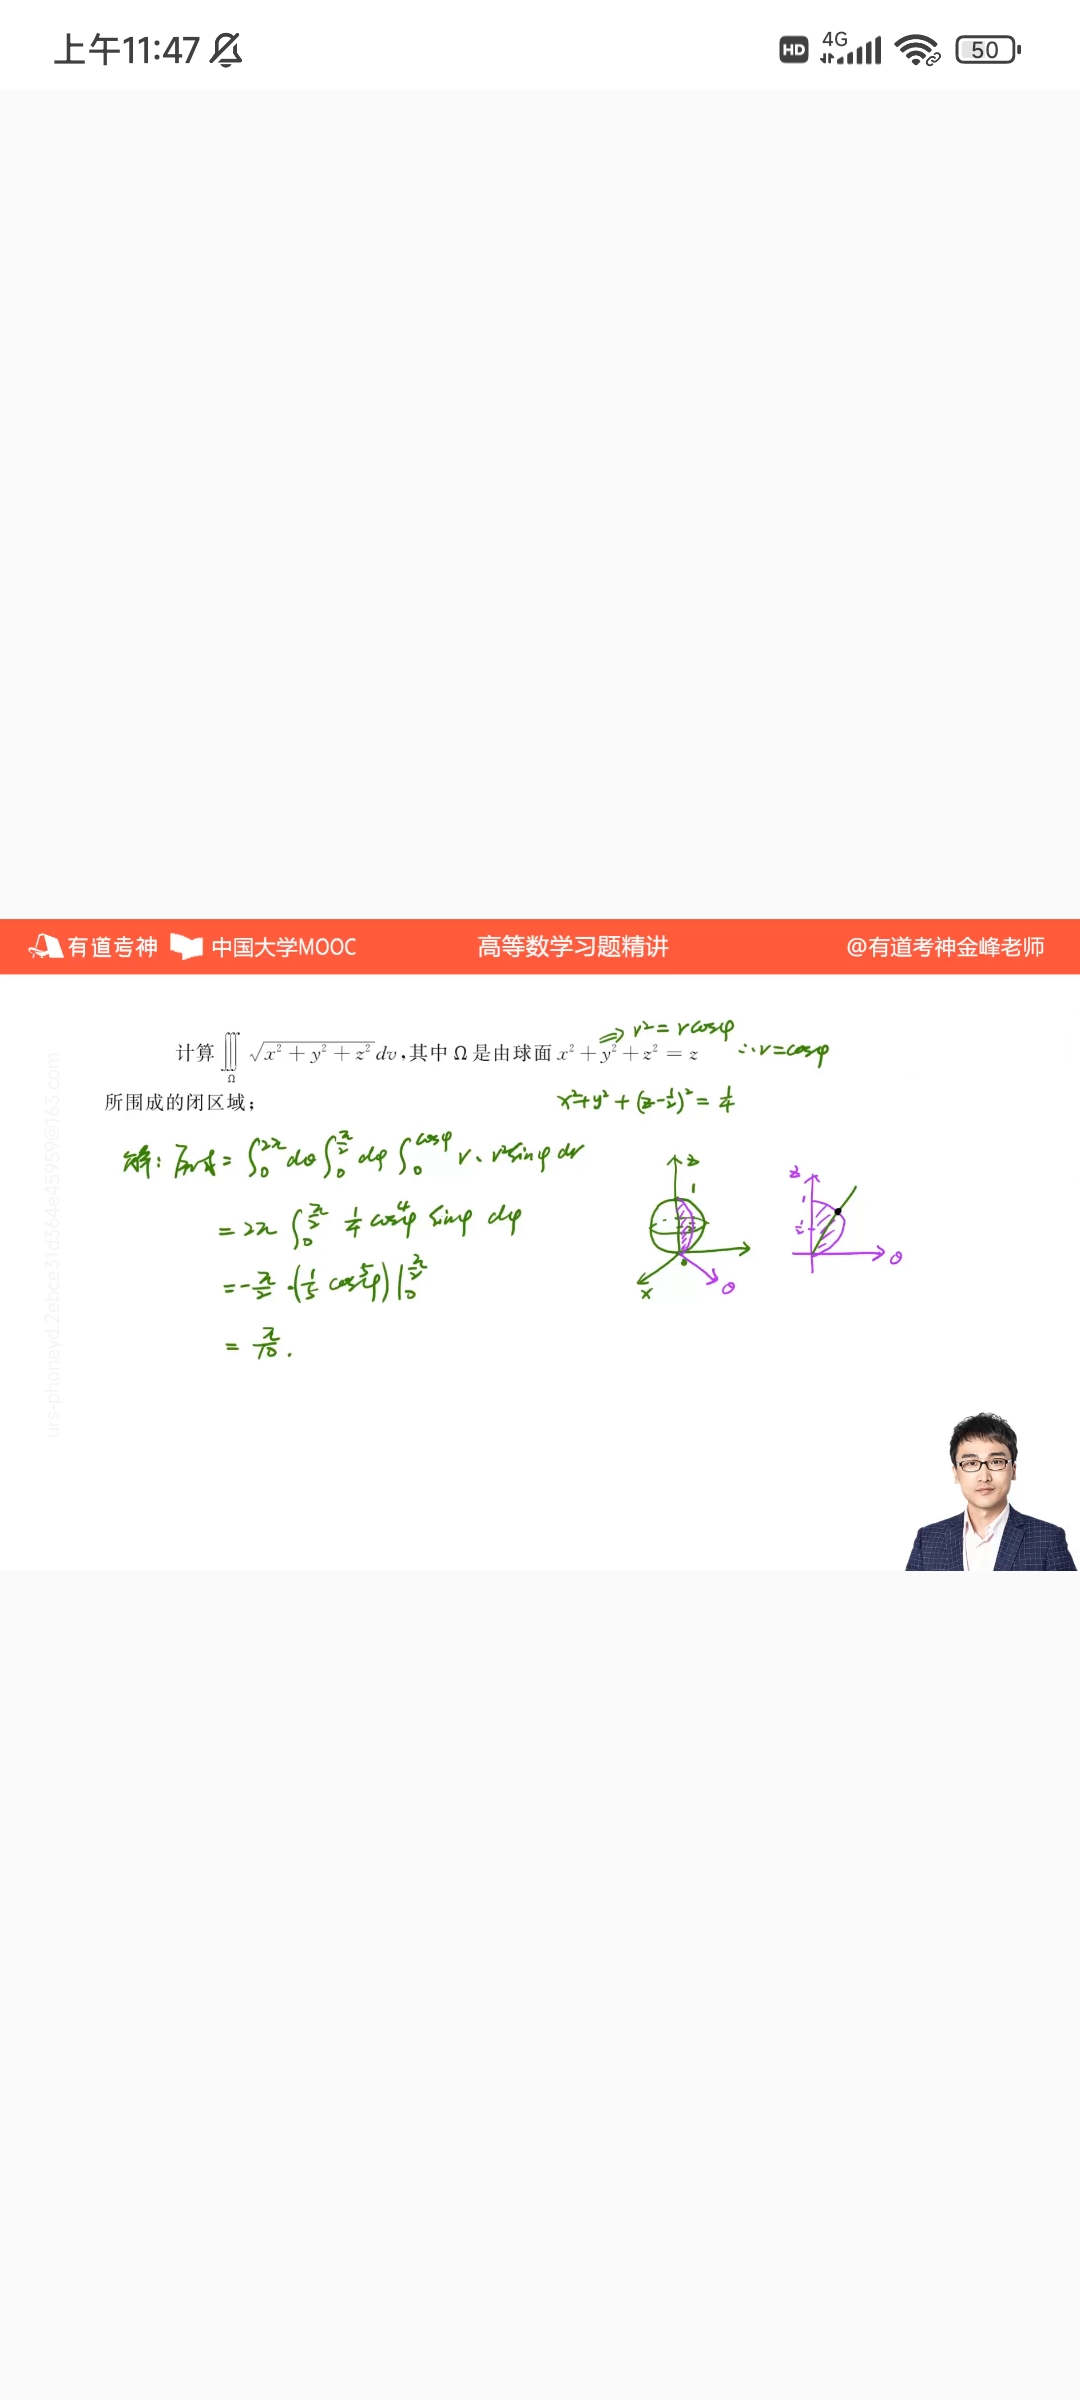 上午11:47 HD 4G 50
有道考神 中国大学MOOC 高等数学习题精讲 @有道考神金峰老师
⇒ r² = r cosφ
计算 ∭_Ω √(x² + y² + z²) dv,其中 Ω 是由球面 x² + y² + z² = z ∴ r = cosφ
所围成的闭区域; x²+y² + (z-1/2)² = 1/4
解: 原式 = ∫₀^{2π} dθ ∫₀^{π/2} dφ ∫₀^{cosφ} r · r² sinφ dr
= 2π ∫₀^{π/2} 1/4 cos⁴φ sinφ dφ
= -π/2 · (1/5 cos⁵φ) |₀^{π/2}
= π/10 .
z 1 x θ
z 1 1/2 θ
urs-phoneyd.2ebce31d364e45959@163.com